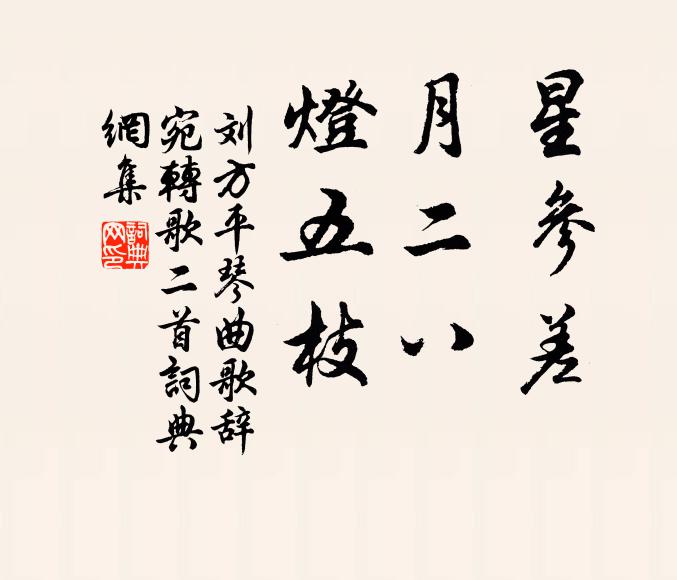 星參差
月二八
燈五枝
刘方平琴曲歌辞
宛轉歌二首詞典
網集
詞典网印